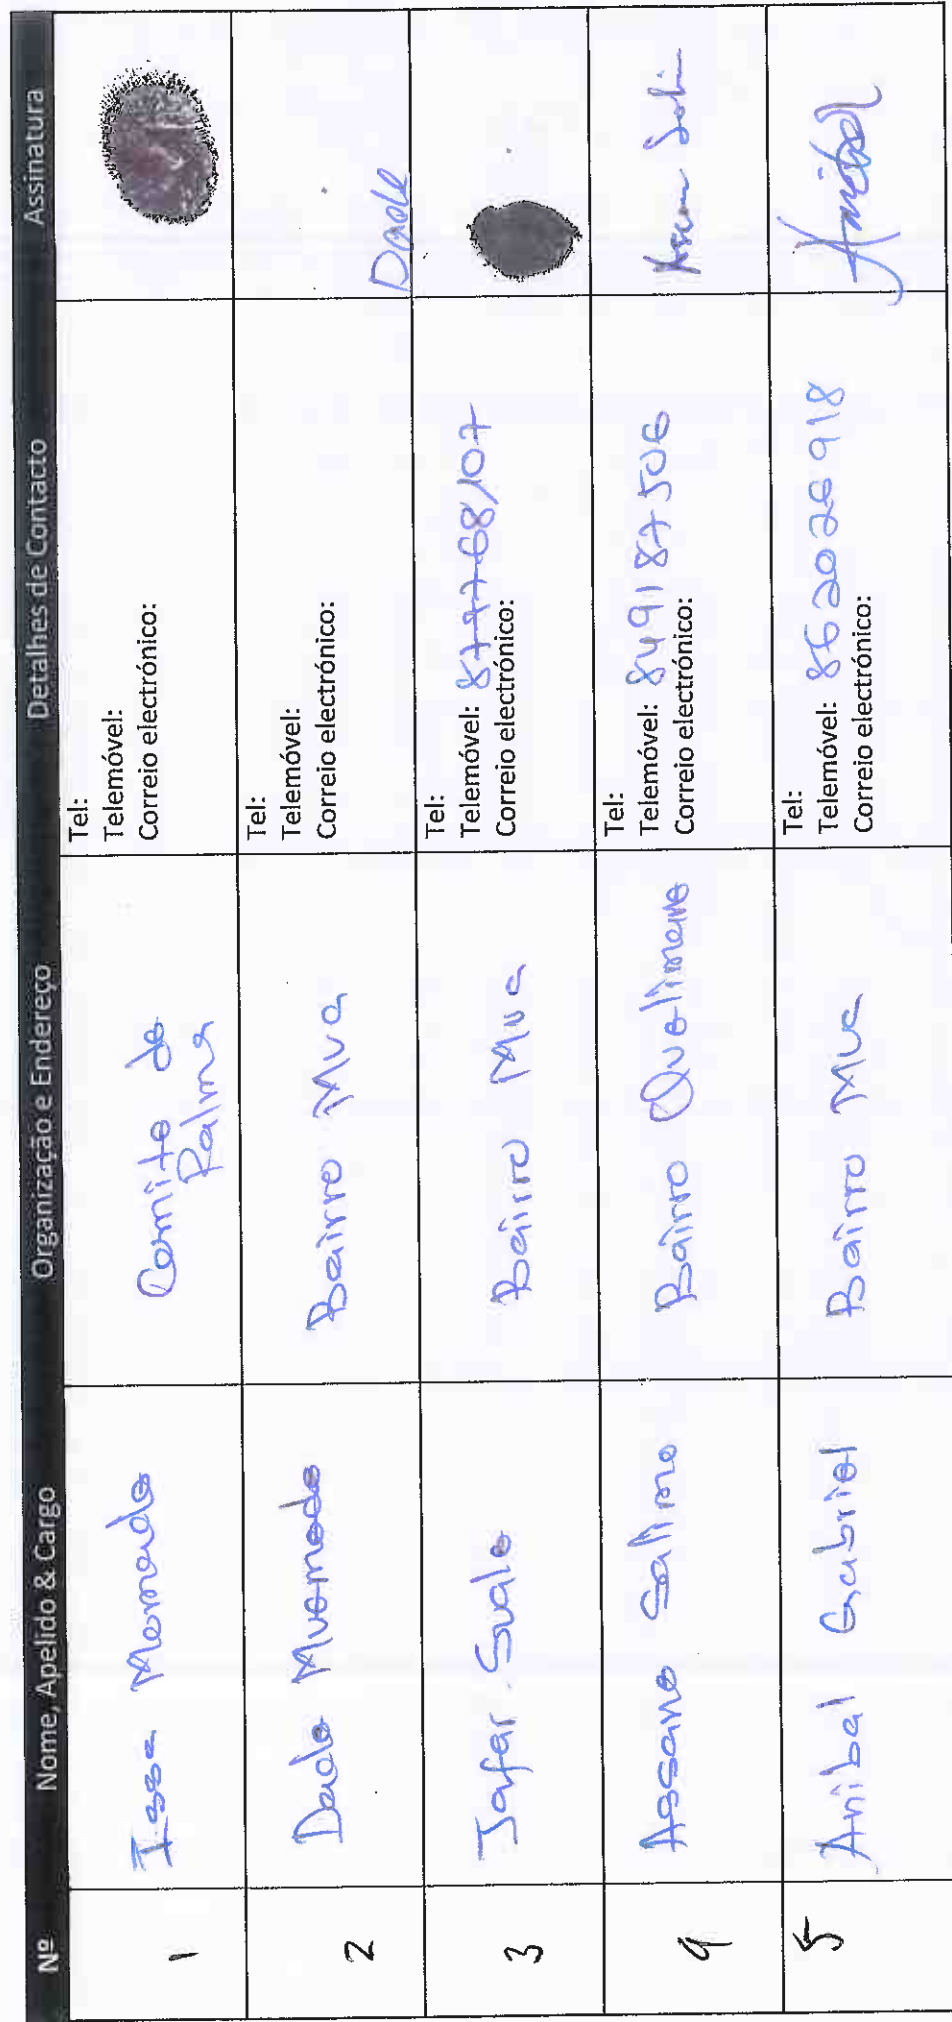 Nº Nome, Apelido & Cargo Organização e Endereço Detalhes de Contacto Assinatura
1 Issa Momade Comite de Palma Tel:
Telemóvel:
Correio electrónico:
2 Dade Muemede Bairro Mua Tel:
Telemóvel:
Correio electrónico:
Dade
3 Jafar Suale Bairro Mua Tel:
Telemóvel: 879768107
Correio electrónico:
4 Assane Salimo Bairro Quelimane Tel:
Telemóvel: 849187506
Correio electrónico:
5 Anibal Gabriel Bairro Mua Tel:
Telemóvel: 862026918
Correio electrónico:
Anibal